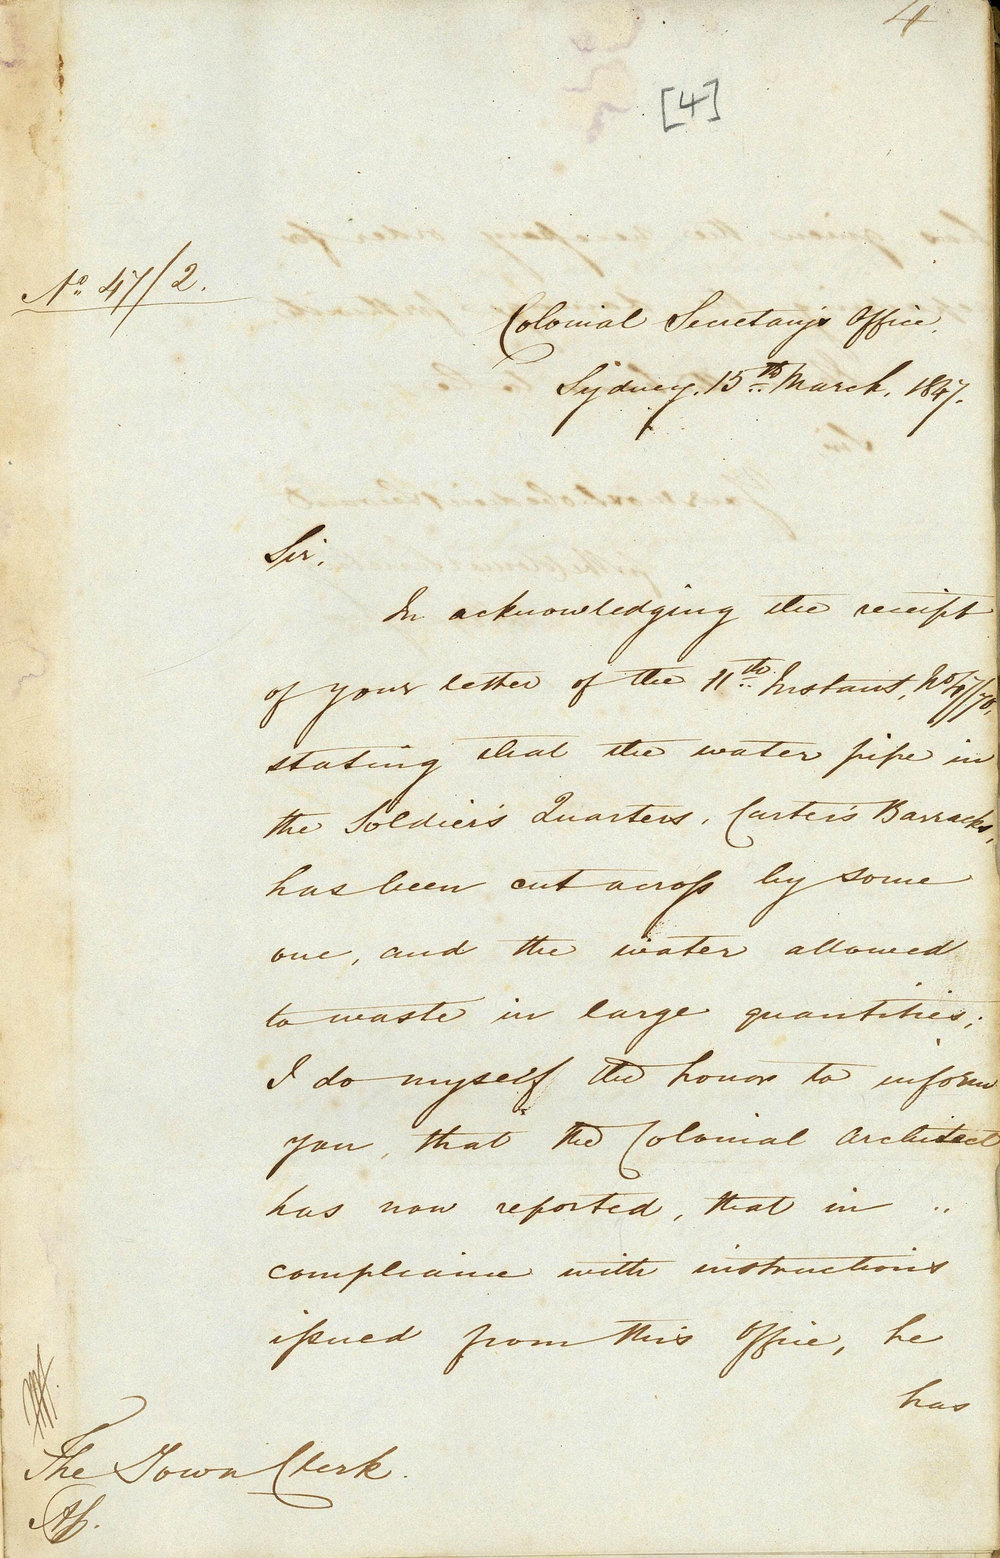 4
[4]
No. 47/2.
Colonial Secretary's Office,
Sydney, 15th March, 1847.
Sir,
In acknowledging the receipt
of your letter of the 11th Instant, No 47/70,
stating that the water pipe in
the Soldier's Quarters, Carter's Barracks,
has been cut across by some
one, and the water allowed
to waste in large quantities;
I do myself the honor to inform
you, that the Colonial Architect
has now reported, that in ..
compliance with instructions
issued from this Office, he
has
The Town Clerk.